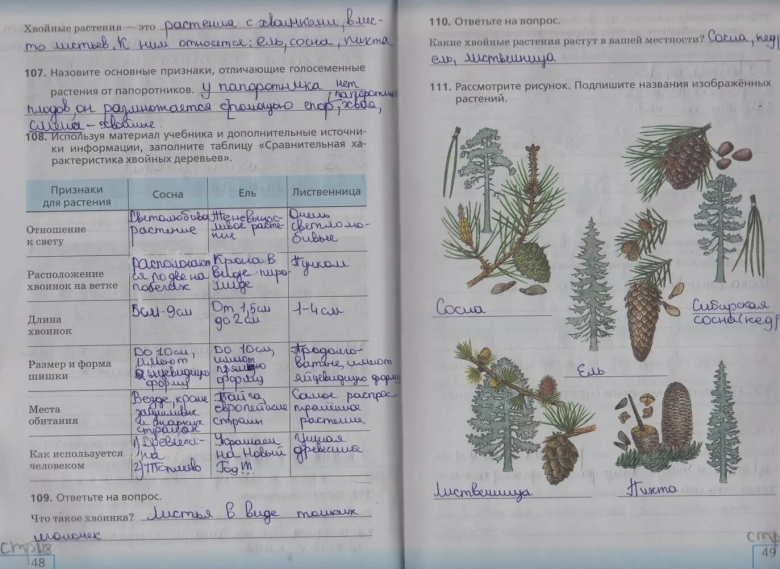 Хвойные растения — это растения с хвоинками, вмес-
то листьев. К ним относятся: ель, сосна, пихта
107. Назовите основные признаки, отличающие голосеменные
растения от папоротников. у папоротника нет
плодов он размножается с помощью спор, хвоя,
108. Используя материал учебника и дополнительные источни-
ки информации, заполните таблицу «Сравнительная ха-
рактеристика хвойных деревьев».
Признаки для растения
Сосна
Ель
Лиственница
Отношение к свету
Светолюбивое растение
Теневынос-
ливое расте-
ние
Очень
светлолю-
бивые
Расположение хвоинок на ветке
Располагают
ся по две на
побегах
Крона в
виде пира-
миде
Пучком
Длина хвоинок
5см-9см
От 1,5см
до 2см
1-4см
Размер и форма шишки
До 10см,
имеют
яйцевидную
форму
До 10см,
имеют
прямую
форму
Продолго-
ватые, имеют
яйцевидную форму
Места обитания
Везде, кроме
и жарких
странах
Тайга,
европейские
страны
Самое распрос-
растение
Как используется человеком
1) Древеси-
на
2) Топливо
Украшаем
на Новый
Год!!!
Ценная
древесина
109. Ответьте на вопрос.
Что такое хвоинка? Листья в виде тонких
иголочек
48
110. Ответьте на вопрос.
Какие хвойные растения растут в вашей местности? Сосна, кедр
ель, лиственница
111. Рассмотрите рисунок. Подпишите названия изображённых
растений.
Сосна
Сибирская
сосна (кедр
Ель
Лиственница
Пихта
стр
49